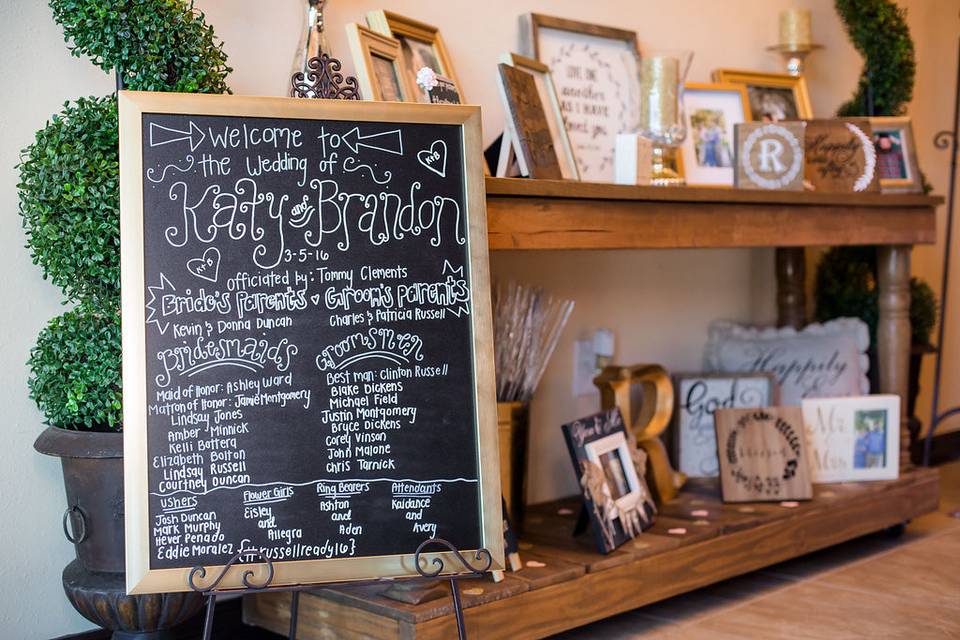 Welcome to
the Wedding of
K+B
Katy and Brandon
3-5-16
K+B
officiated by: Tommy Clements
Bride's Parents ♥ Groom's Parents
Kevin & Donna Duncan
Charles & Patricia Russell
Bridesmaids
Maid of Honor: Ashley Ward
Matron of Honor: Jamie Montgomery
Lindsay Jones
Amber Minnick
Kelli Bottera
Elizabeth Bolton
Lindsay Russell
Courtney Duncan
Groomsmen
Best man: Clinton Russell
Blake Dickens
Michael Field
Justin Montgomery
Bruce Dickens
Corey Vinson
John Malone
Chris Tarnick
Ushers
Josh Duncan
Mark Murphy
Hever Penado
Eddie Moralez
Flower Girls
Eisley
and
Allegra
Ring Bearers
Ashton
and
Aden
Attendants
Kaidance
and
Avery
{#russellready16}
LOVE ONE
another
AS I HAVE
loved you
R
Happily
R
God
Happily
Mr
Mrs